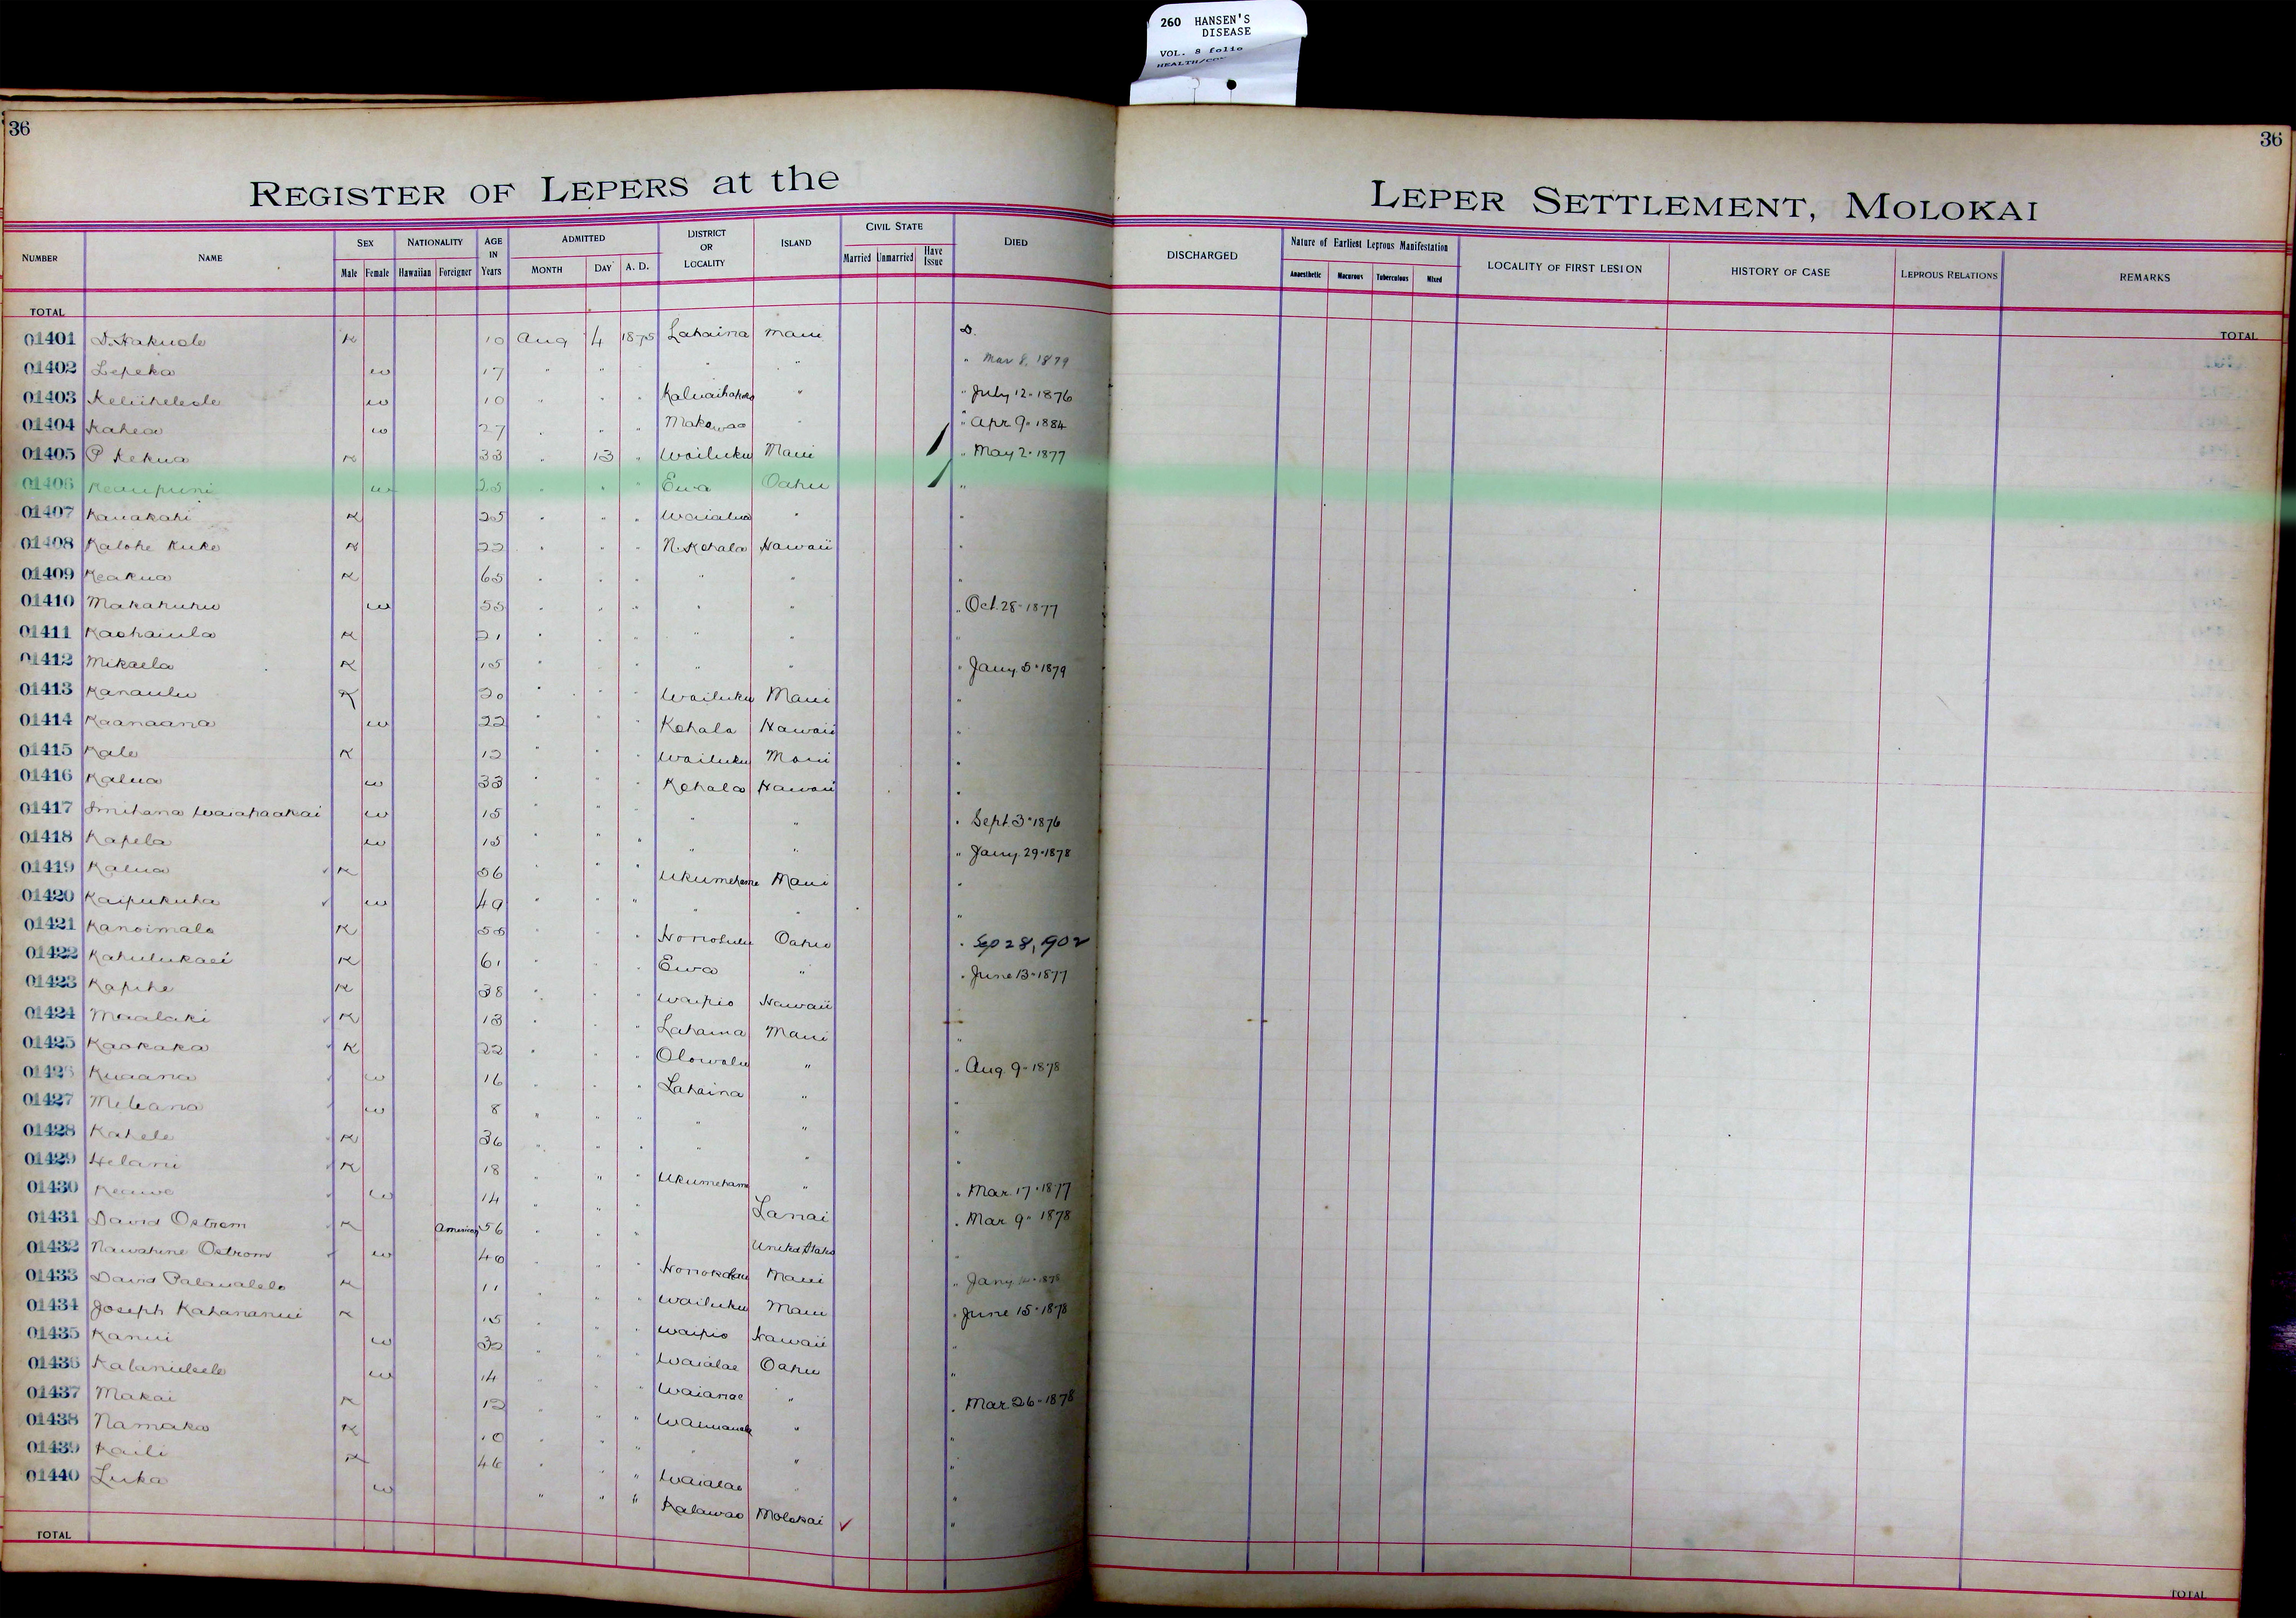 260 HANSEN'S
DISEASE
VOL. 8 folio
36
36
REGISTER OF LEPERS at the LEPER SETTLEMENT, MOLOKAI
NUMBER NAME SEX NATIONALITY AGE IN Years ADMITTED DISTRICT OR LOCALITY ISLAND CIVIL STATE DIED DISCHARGED Nature of Earliest Leprous Manifestation LOCALITY OF FIRST LESION HISTORY OF CASE LEPROUS RELATIONS REMARKS
Male Female Hawaiian Foreigner MONTH DAY A. D. Married Unmarried Have Issue Anaesthetic Macurous Tuberculous Mixed
TOTAL TOTAL
01401 D. Hakuole K 10 Aug 4 1875 Lahaina Maui D.
01402 Lepeka w 17 " " " " " Mar 8. 1879
01403 w 10 " " " " " July 12 - 1876
01404 Kahea w 27 " " " Makawao " " Apr 9 - 1884
01405 P Kekua K 33 " 13 " Wailuku Maui " May 2 - 1877
01406 Keaupuni w 25 " " " Ewa Oahu "
01407 Kauakahi K 25 " " " Waialua " "
01408 Kalohe Kuke K 22 " " " N. Kohala Hawaii "
01409 Keakua K 65 " " " " " "
01410 Makahuhu w 55 " " " " " " Oct. 28 - 1877
01411 Kaohaiula K 21 " " " " " "
01412 Mikaela K 15 " " " " " " Jany. 5 - 1879
01413 Kanaulu K 20 " " " Wailuku Maui "
01414 Kaanaana w 22 " " " Kohala Hawaii "
01415 Kale K 12 " " " Wailuku Maui "
01416 Kalua w 33 " " " Kohala Hawaii "
01417 w 15 " " " " " " Sept. 3 - 1876
01418 Kapela w 15 " " " " " " Jany. 29 - 1878
01419 Kalua K 56 " " " Ukumehame Maui "
01420 Kaipukuha w 49 " " " " " "
01421 Kanoimalo K " " " Honolulu Oahu " Sep 28, 1902
01422 Kahulukaei K 61 " " " Ewa " " June 13 - 1877
01423 Kapihe K 38 " " " Waipio Hawaii
01424 Maalaki K 13 " " " Lahaina Maui "
01425 Kaokaka K 22 " " " Olowalu " " Aug. 9 - 1878
01426 Kuaana w 16 " " " Lahaina " "
01427 Meleana w 8 " " " " " "
01428 Kahele K 36 " " " " " "
01429 Helani K 18 " " " Ukumehame " " Mar. 17 - 1877
01430 Keawe w 14 " " " Lanai " Mar. 9 - 1878
01431 David Ostrom K American 56 " " " United States "
01432 Nawahine Ostrom w " " " Honokohau Maui " Jany
01433 David K 11 " " " Wailuku Maui " June 15 - 1878
01434 Joseph Kahananui K 15 " " " Waipio Hawaii "
01435 Kanui w 32 " " " Waialae Oahu "
01436 w 14 " " " Waianae " " Mar. 26 - 1878
01437 Makai K 12 " " " " "
01438 Namaka K 10 " " " " " "
01439 Kaili K 46 " " " Waialae " "
01440 Luka w " " " Kalawao Molokai "
TOTAL TOTAL